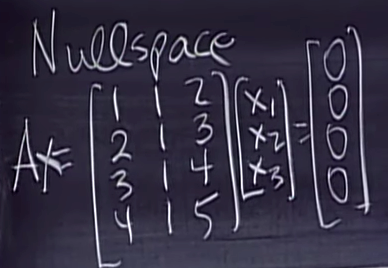 Nullspace
Ax = [1 1 2; 2 1 3; 3 1 4; 4 1 5] [x₁; x₂; x₃] = [0; 0; 0; 0]